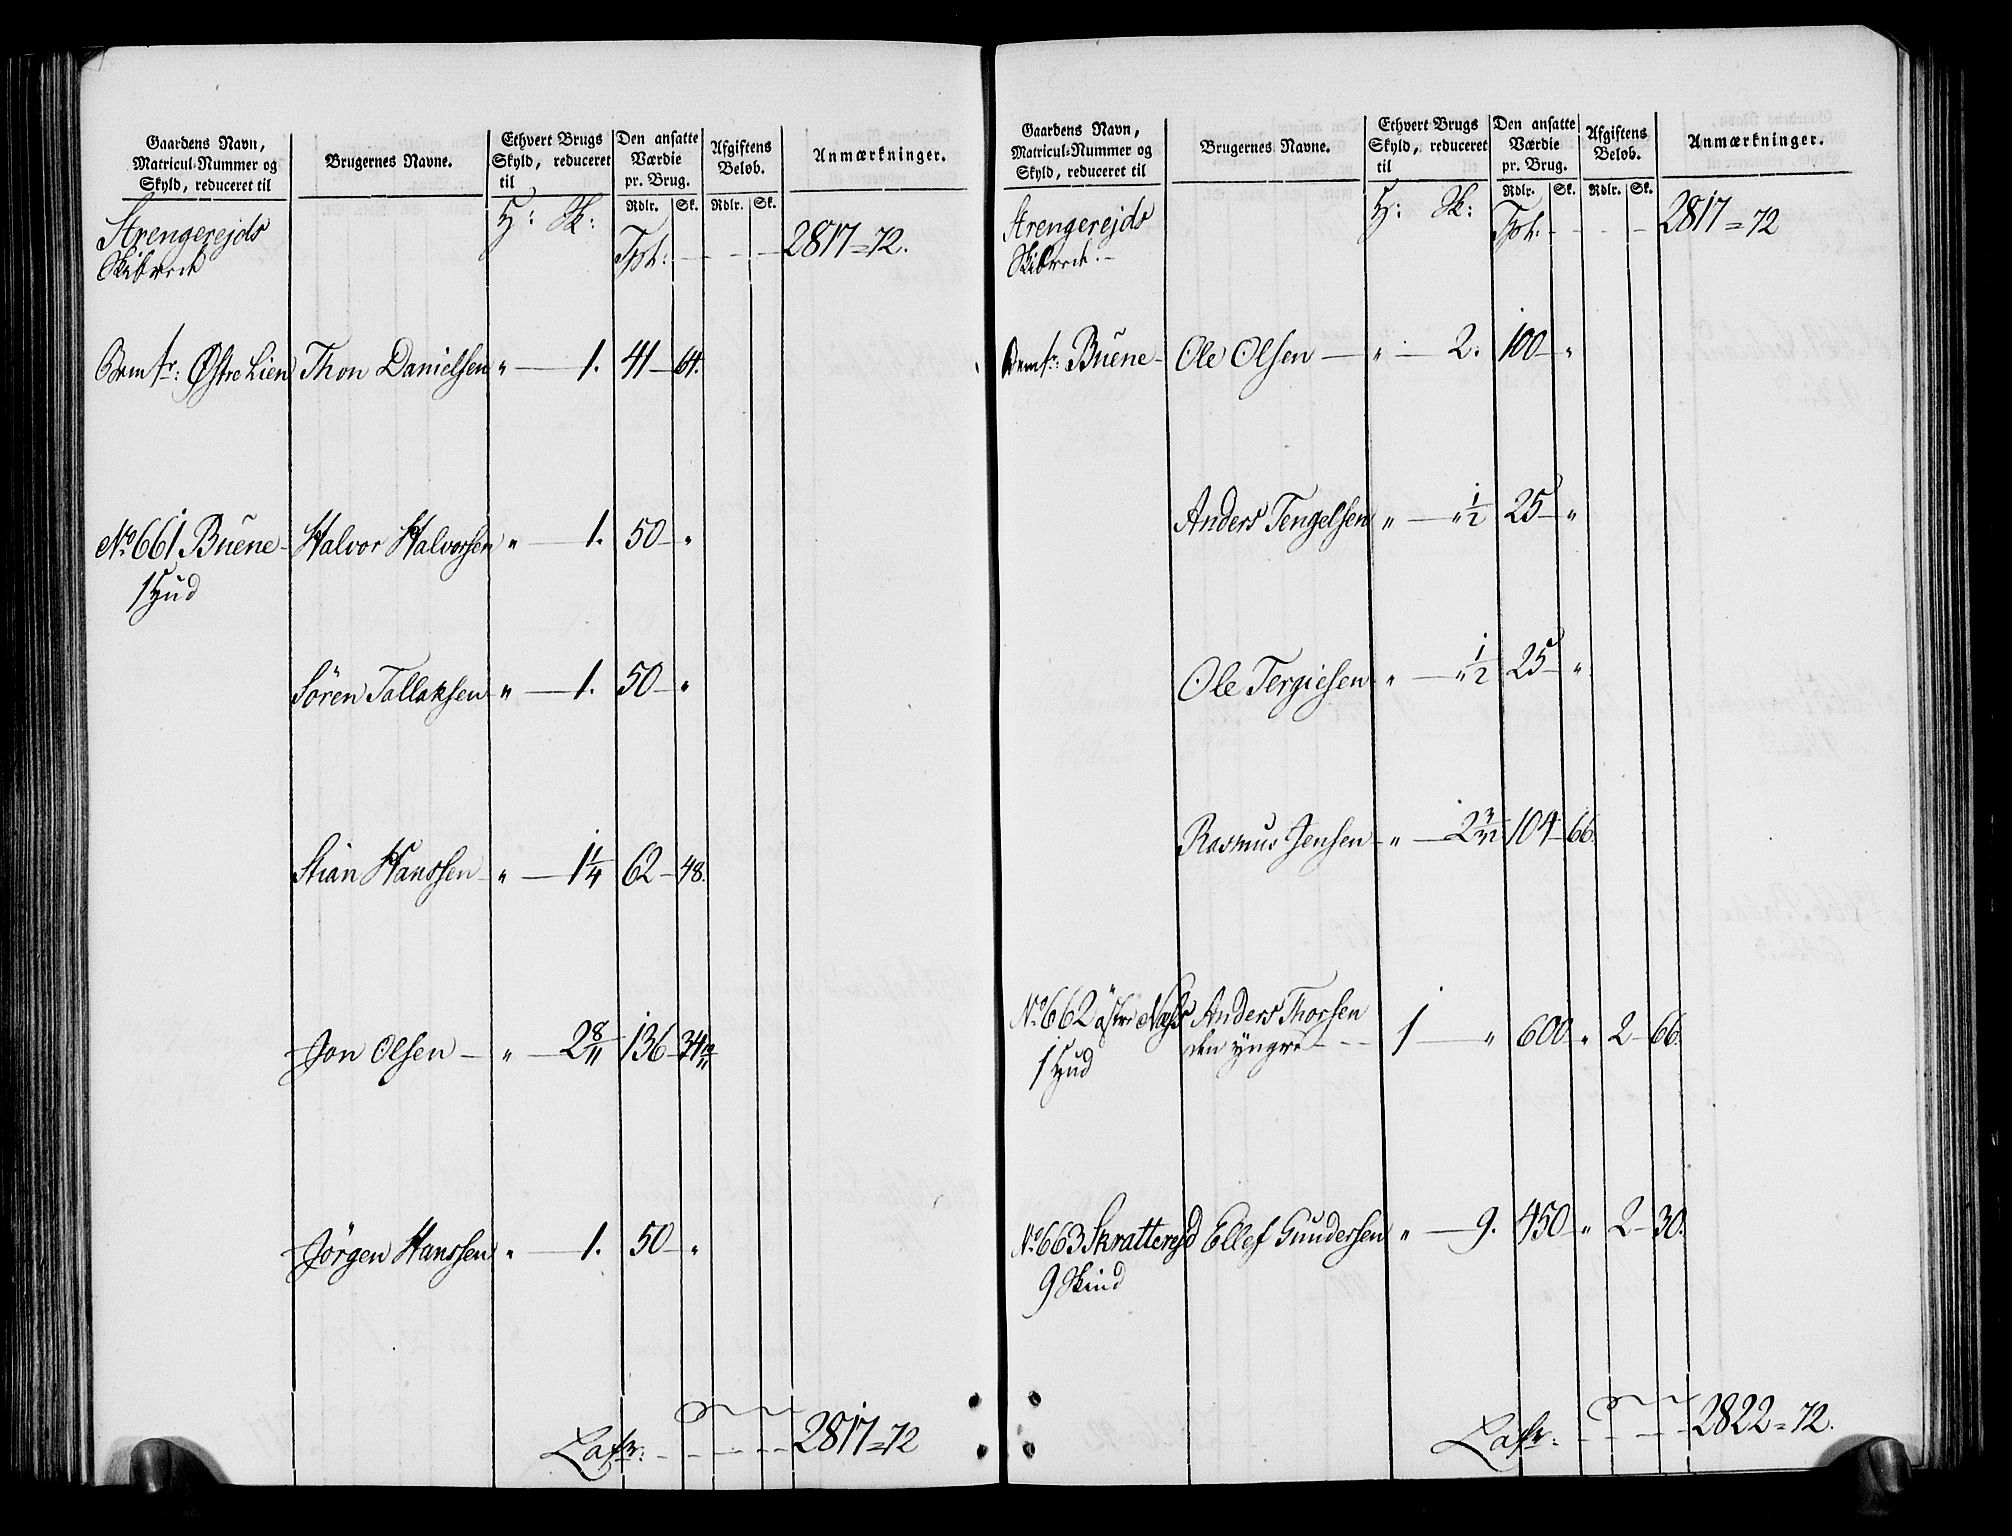 Gaardens Navn,
Matricul-Nummer og
Skyld, reduceret til
Brugernes Navne.
Ethvert Brugs
Skyld, reduceret
til
Den ansatte
Værdie
pr. Brug.
Afgiftens
Beløb.
Anmærkninger.
Rdlr. Sk. Rdlr. Sk.
Strengerejds H: Sk:
Skibred Tpt: - - - 2817=72.
Østre Lien Thon Danielsen „ — 1. 41 — 64.
No. 661 Buene - Halvor Halvorsen „ — 1. 50 — „
1 Hud
Sören Tallaksen „ — 1. 50 — „
Stian Hanssen - „ — 1 1/4 62 — 48.
Jon Olsen — „ — 2 8/11 136 — 34
Jörgen Hanssen „ — 1. 50 — „
Lafr: - - - 2817=72
Gaardens Navn,
Matricul-Nummer og
Skyld, reduceret til
Brugernes Navne.
Ethvert Brugs
Skyld, reduceret
til
Den ansatte
Værdie
pr. Brug.
Afgiftens
Beløb.
Anmærkninger.
Rdlr. Sk. Rdlr. Sk.
Strengerejds H: Sk: Tpt: - - - 2817=72
Skibred. -
Buene - Ole Olsen — „ — 2. 100 — „
Anders Tengelsen „ — „ 1/2 25 — „
Ole Tergiesen „ — „ 1/2 25 — „
Rasmus Jensen - „ — 2 104 — 66.
No. 662 östre Næss Anders Thorsen
den yngre - - 1 — „ 600 „ 2 — 66.
1 Hud
No. 663 Skratterejd Ellef Gundersen „ — 9. 450 „ 2 — 30.
9 Skind
Lafr: - - - 2822=72.